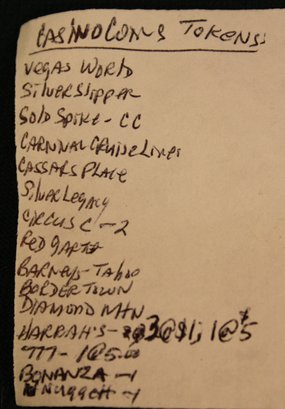 CASINO COINS TOKENS:
VEGAS WORLD
SILVER SLIPPER
GOLD SPIKE - CC
CARNIVAL CRUISE LINES
CASSARS PLACE
SILVER LEGACY
CIRCUS C - 2
RED GARTER
BARNEYS - TAHOO
BORDERTOWN
DIAMOND MTN
HARRAH'S - 3@$1; 1@$5
777 - 1@5.00
BONANZA - 1
NUGGETT - 1